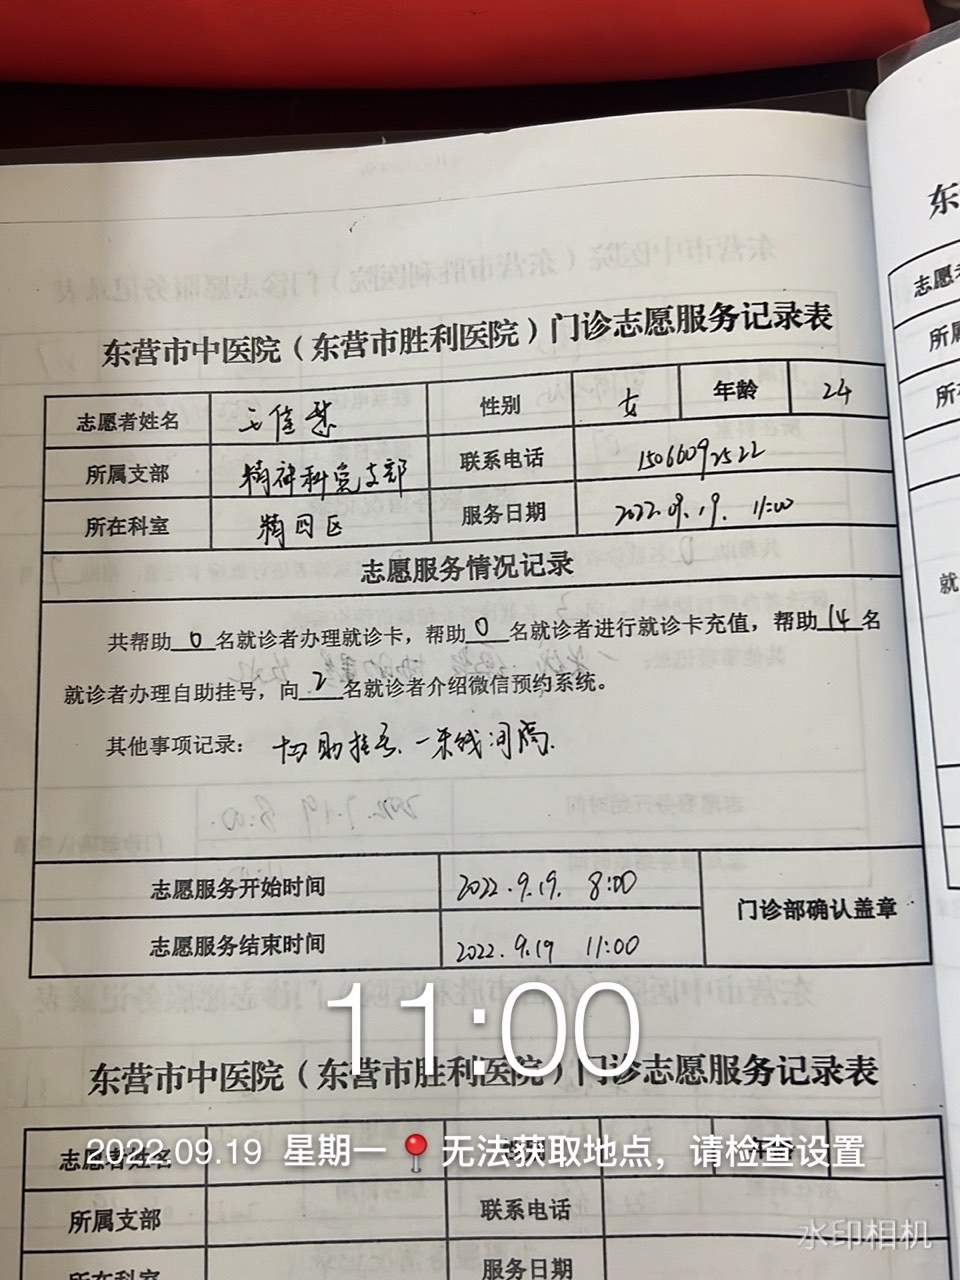 东营市中医院（东营市胜利医院）门诊志愿服务记录表
志愿者姓名 王佳慧 性别 女 年龄 24
所属支部 精神科党支部 联系电话 15066092522
所在科室 精四区 服务日期 2022.09.19. 11:00
志愿服务情况记录
共帮助 0 名就诊者办理就诊卡，帮助 0 名就诊者进行就诊卡充值，帮助 14 名
就诊者办理自助挂号，向 2 名就诊者介绍微信预约系统。
其他事项记录： 协助挂号、一米线
志愿服务开始时间 2022.9.19. 8:00
门诊部确认盖章
志愿服务结束时间 2022.9.19 11:00
11:00
东营市中医院（东营市胜利医院）门诊志愿服务记录表
志愿者姓名 年龄
2022.09.19 星期一 无法获取地点，请检查设置
所属支部 联系电话
水印相机
所在科室 服务日期
东
志愿者
所属
所在
就